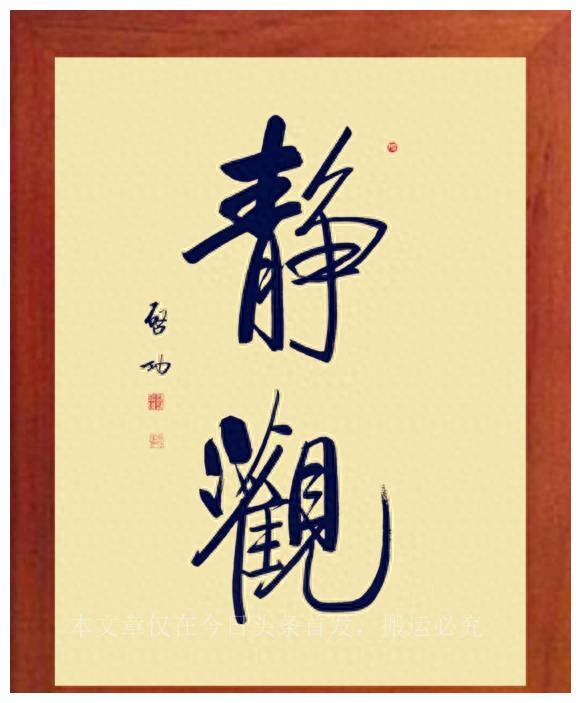 静觀
啓功
本文章仅在今日头条首发，搬运必究